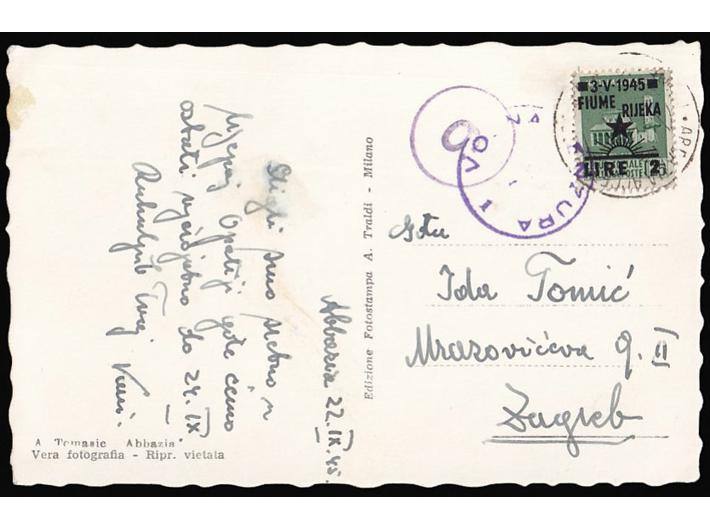 Stigli smo sretno u
lijepoj Opatiji gdje ćemo
ostati vjerojatno do 24. IX.
Abbazia 22. IX. 45.
A Tomasic Abbazia
Vera fotografia - Ripr. vietata
Edizione Fotostampa A. Traldi - Milano
3-V-1945
FIUME RIJEKA
LIRE 2
Ida Tomić
Mrazovićeva 9. II
Zagreb